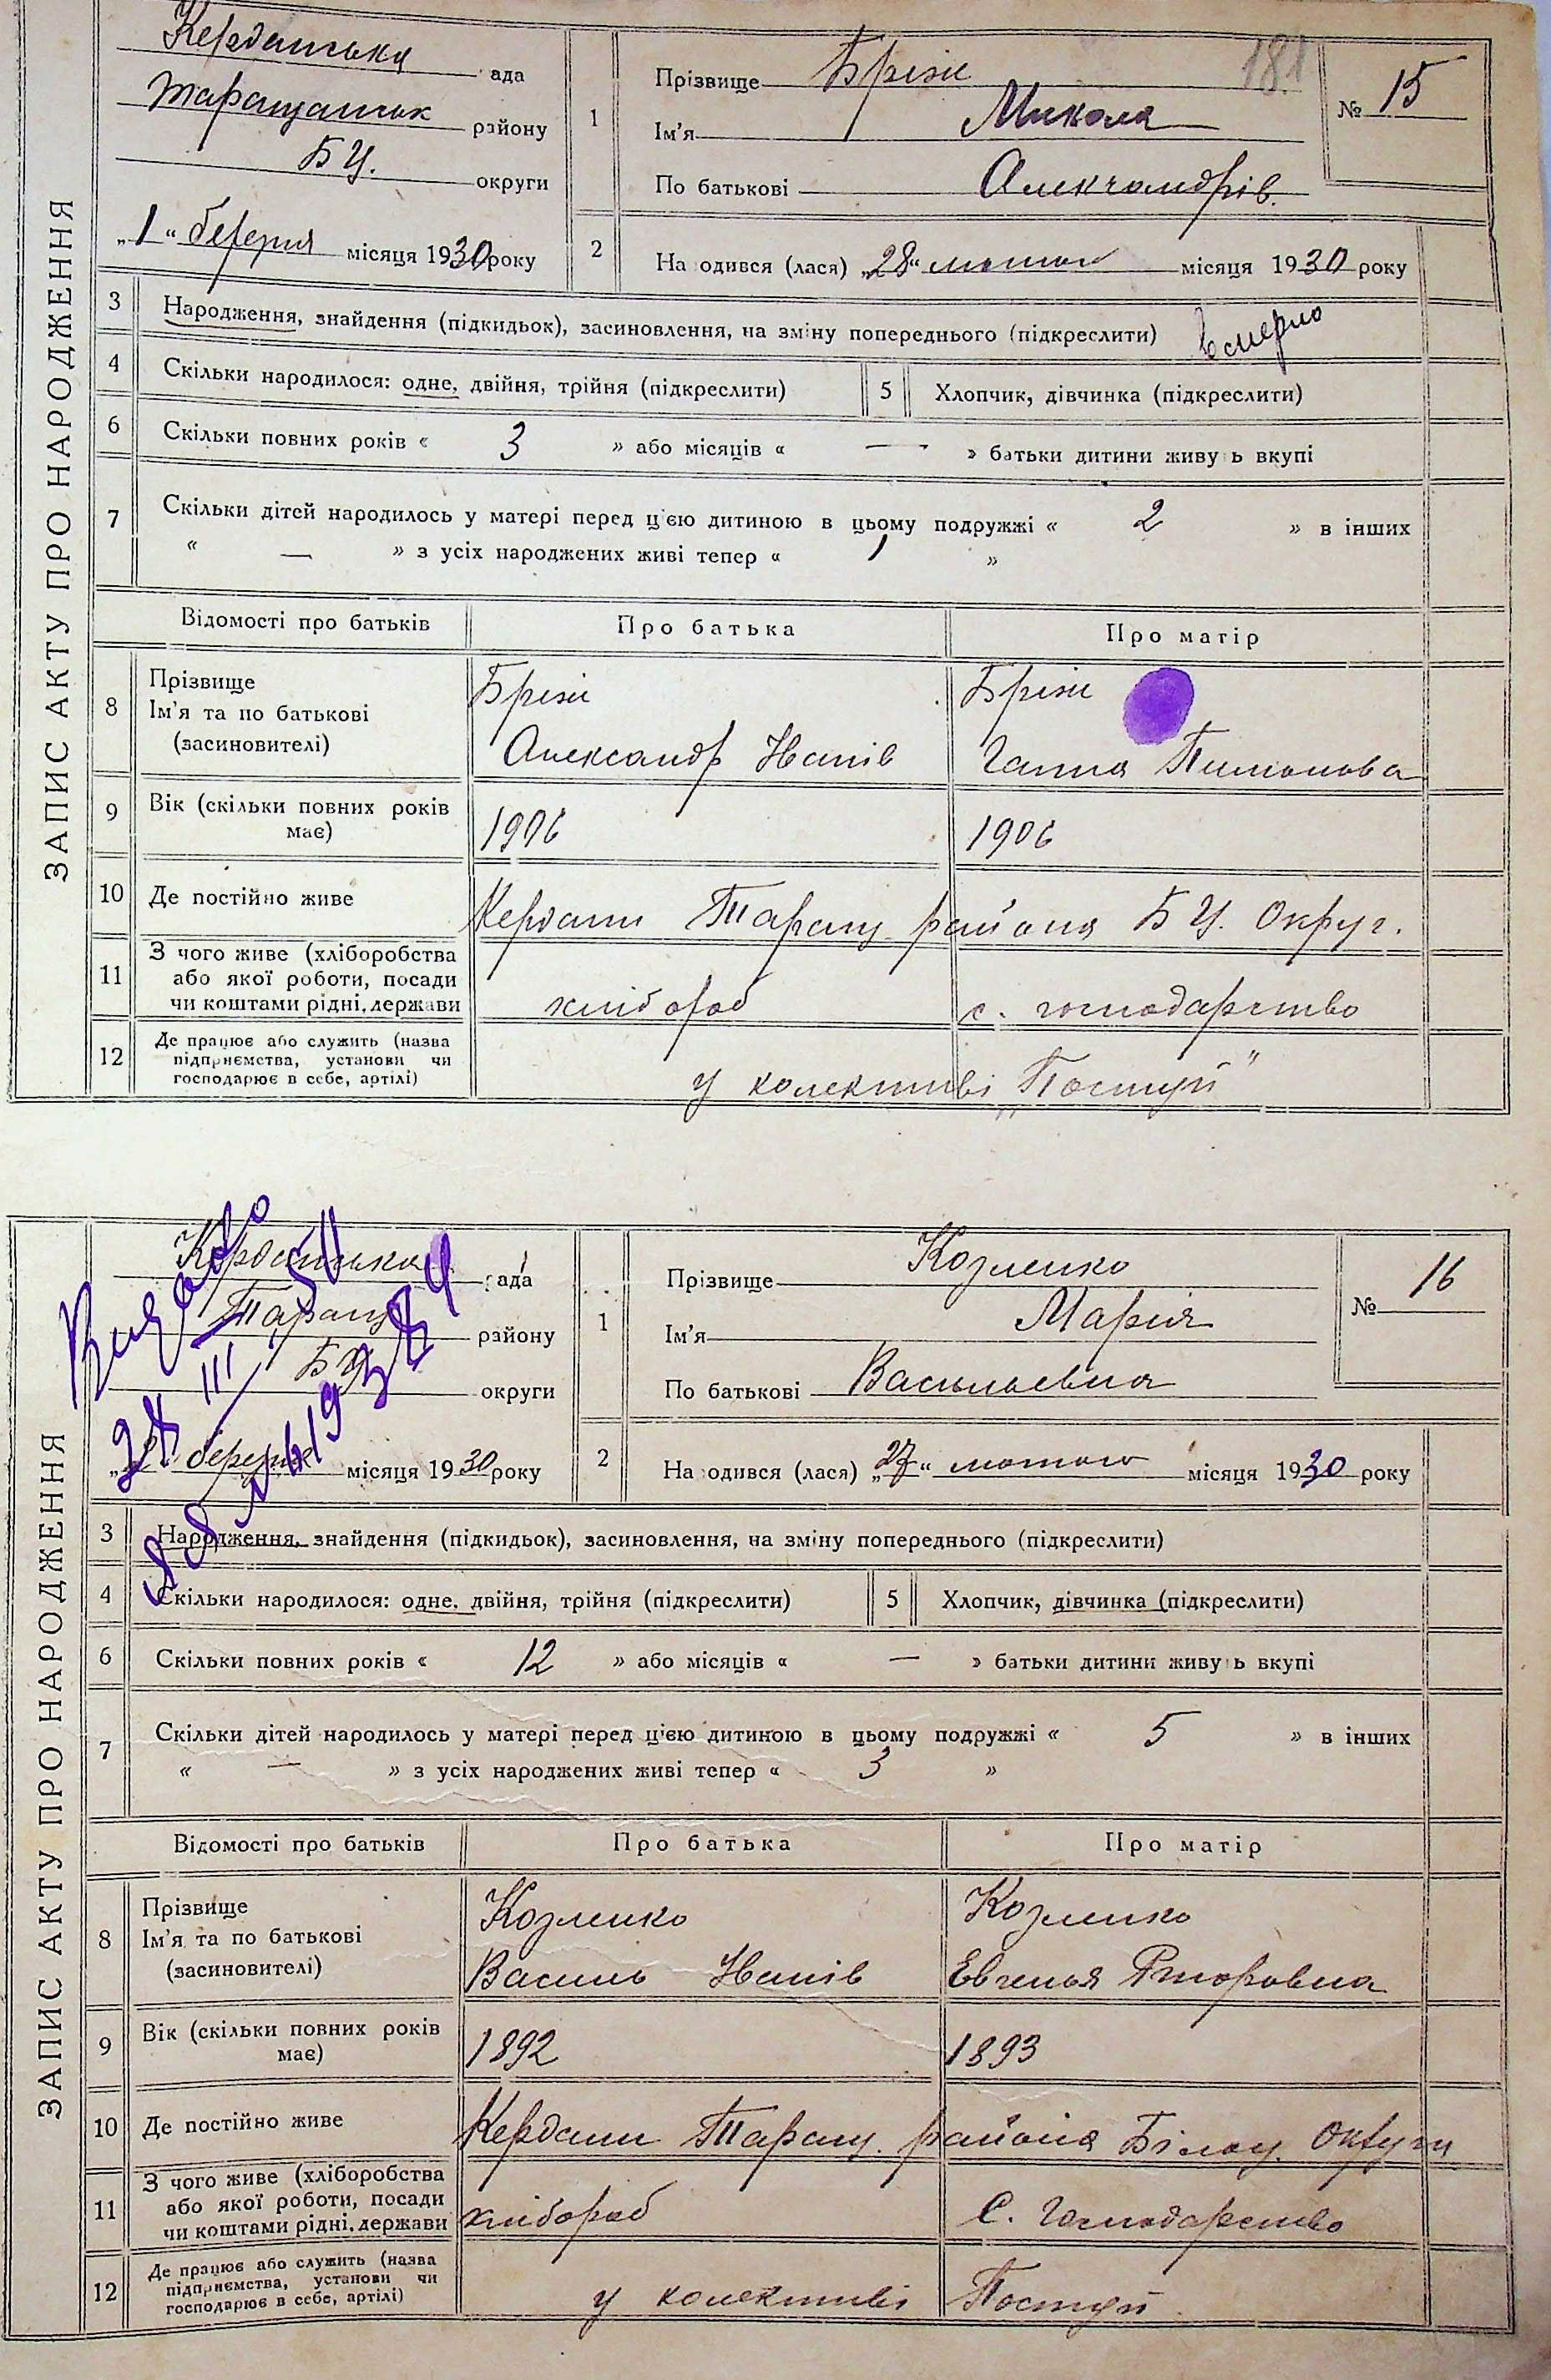 ЗАПИС АКТУ ПРО НАРОДЖЕННЯ
Керданська рада
Таращанськ району
Б Ц. округи
„1“ березня місяця 1930 року
181
1 Прізвище
Ім'я Микола
По батькові Александрів.
№ 15
2 На одився (лася) „28“ лютого місяця 1930 року
3 Народження, знайдення (підкидьок), засиновлення, на зміну попереднього (підкреслити) вмерло
4 Скільки народилося: одне, двійня, трійня (підкреслити) 5 Хлопчик, дівчинка (підкреслити)
6 Скільки повних років « 3 » або місяців « — » батьки дитини живу ь вкупі
7 Скільки дітей народилось у матері перед цією дитиною в цьому подружжі « 2 » в інших
« — » з усіх народжених живі тепер « 1 »
Відомості про батьків Про батька Про матір
8 Прізвище
Ім'я та по батькові
(засиновителі)
Александр Іванів Ганна Тимонова
9 Вік (скільки повних років має) 1906 1906
10 Де постійно живе Кердани Таращ. района Б Ц. Округ.
11 З чого живе (хліборобства
або якої роботи, посади
чи коштами рідні, держави
хлібороб с. господарство
12 Де працює або служить (назва
підприємства, установи чи
господарює в себе, артілі)
у колективі „Поступ"
ЗАПИС АКТУ ПРО НАРОДЖЕННЯ
Керданська рада
Таращ району
Б Ц округи
березня місяця 1930 року
Видано
1 Прізвище Козленко
Ім'я Марія
По батькові Васильевна
№ 16
2 На одився (лася) „27“ лютого місяця 1930 року
3 Народження, знайдення (підкидьок), засиновлення, на зміну попереднього (підкреслити)
4 Скільки народилося: одне, двійня, трійня (підкреслити) 5 Хлопчик, дівчинка (підкреслити)
6 Скільки повних років « 12 » або місяців « — » батьки дитини живу ь вкупі
7 Скільки дітей народилось у матері перед цією дитиною в цьому подружжі « 5 » в інших
« — » з усіх народжених живі тепер « 3 »
Відомості про батьків Про батька Про матір
8 Прізвище
Ім'я та по батькові
(засиновителі)
Козленко Козленко
Василь Іванів Евгенья
9 Вік (скільки повних років має) 1892 1893
10 Де постійно живе Кердани Таращ. района Білоц. Округи
11 З чого живе (хліборобства
або якої роботи, посади
чи коштами рідні, держави
хлібороб С. Господарство
12 Де працює або служить (назва
підприємства, установи чи
господарює в себе, артілі)
у колективі Поступ